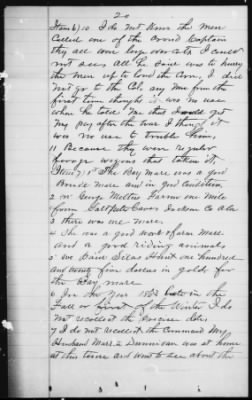 20
Item 6/10 I do not know the men
Called one of the Crowd Captain
they all wore large over coats I could
not see all he said was to hurry
the men up to load the Corn, I did
not go to the Col. any more from the
first time thought it was no use
when he told me that would get
my pay after the war I thought it
was no use to trouble him,
11 Because they were regular
forage wagons that taken it,
Item 7/1st The Bay mare was a good
mare and in good condition,
2 George Farm one mile
from Cave Jackson Co Ala
3 there was one mare
4 She was a good work of farm mare
and a good riding animal
5 we Paid Silas Hunt one hundred
and twenty five dollars in gold for
the Bay mare
6 In the year 1863 late in the
Fall or first of the Winter I do
not recollect the precise date,
7 I do not recollect the Command My
Husband was at home
at this time and went to see about the